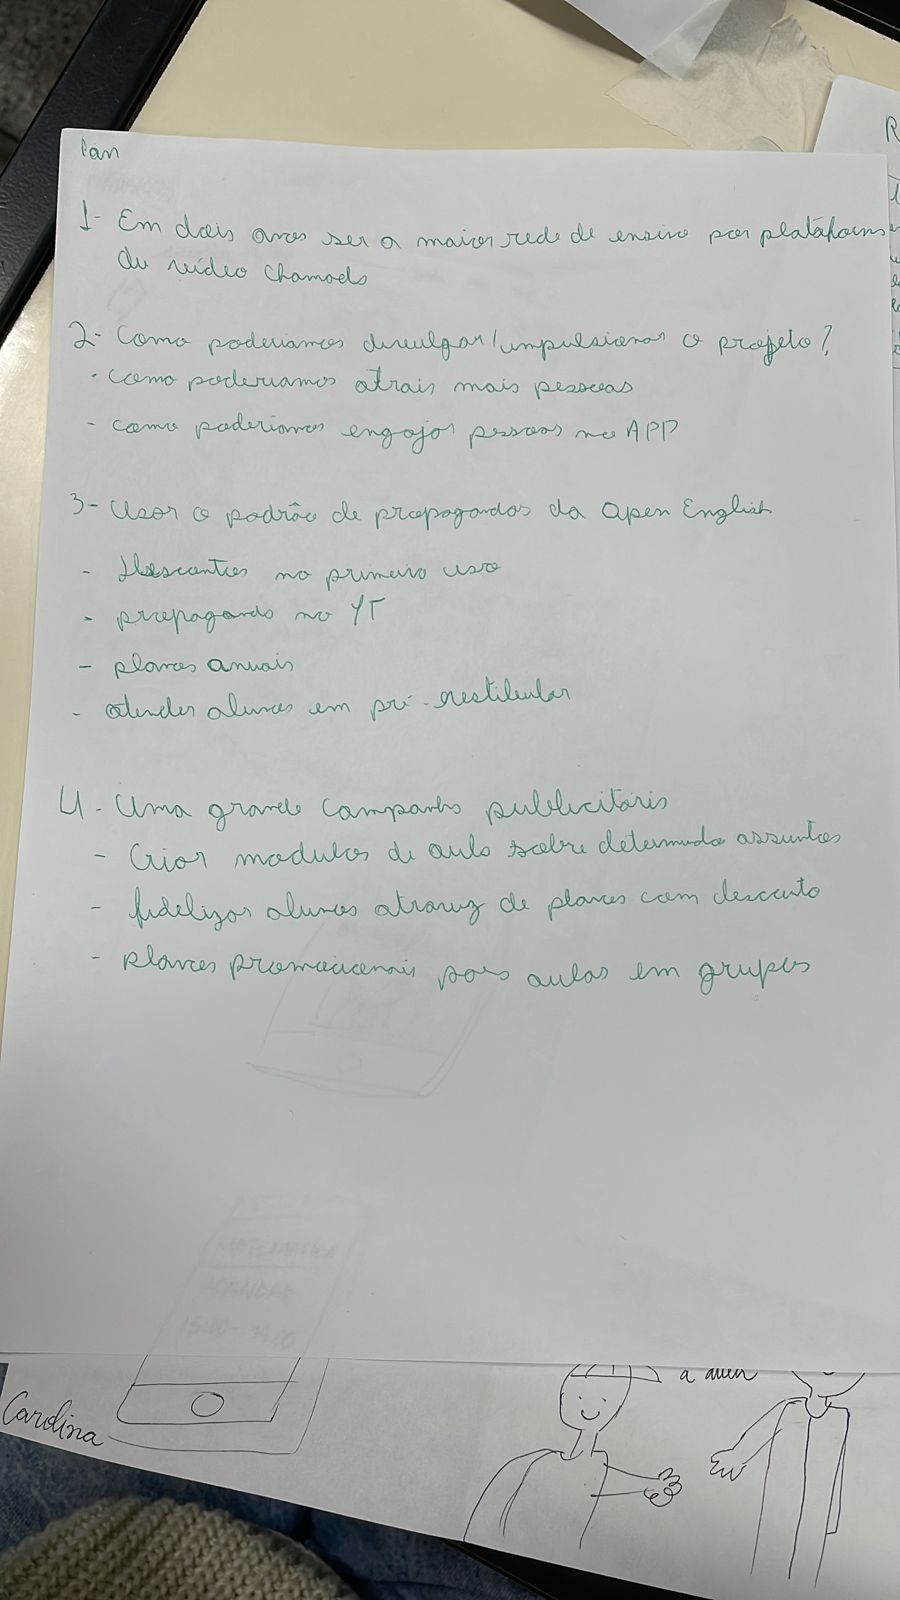 Ian
1- Em dois anos ser a maior rede de ensino por plataforma
de video chamada
2- Como poderiamos divulgar/impulsionar o projeto?
- como poderiamos atrais mais pessoas
- como poderiamos engajar pessoas no APP
3- Usar o padrão de propagandas da Open English
- descontos no primeiro uso
- propaganda no YT
- planos anuais
- atender alunos em pré-vestibular
4- Uma grande campanha publicitária
- Criar modulos de aula sobre assuntos
- fidelizar alunos atravez de planos com desconto
- Planos promocionais para aulas em grupos
MATEMÁTICA
Carolina
a aula